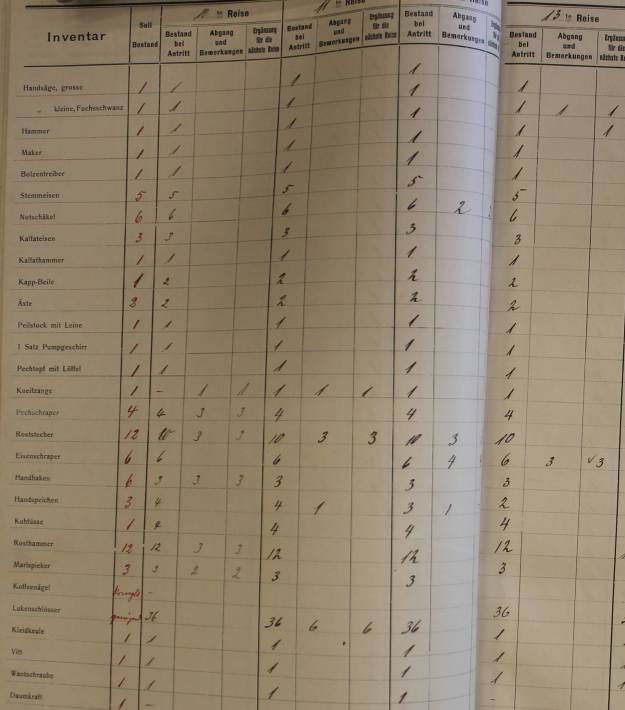 10 te Reise 11 te Reise te Reise 13 te Reise
Inventar Soll Bestand Bestand bei Antritt Abgang und Bemerkungen Ergänzung für die nächste Reise Bestand bei Antritt Abgang und Bemerkungen Ergänzung für die nächste Reise Bestand bei Antritt Abgang und Bemerkungen Bestand bei Antritt Abgang und Bemerkungen
Handsäge, grosse 1 1 1 1 1
„ kleine, Fuchsschwanz 1 1 1 1 1 1 1
Hammer 1 1 1 1 1 1
Maker 1 1 1 1 1
Bolzentreiber 1 1 1 1 1
Stemmeisen 5 5 5 5 5
Notschäkel 6 6 6 6 2 6
Kalfateisen 3 3 3 3 3
Kalfathammer 1 1 1 1 1
Kapp-Beile 1 2 2 2 2
Äxte 2 2 2 2 2
Peilstock mit Leine 1 1 1 1 1
1 Satz Pumpgeschirr 1 1 1 1 1
Pechtopf mit Löffel 1 1 1 1 1
Kneifzange 1 – 1 1 1 1 1 1 1
Pechschraper 4 4 3 3 4 4 4
Roststecher 12 10 3 3 10 3 3 10 3 10
Eisenschraper 6 6 6 6 4 6 3 √3
Handhaken 6 3 3 3 3 3 3
Handspeichen 3 4 4 1 3 1 2
Kuhfüsse 1 4 4 4 4
Rosthammer 12 12 3 3 12 12 12
Marlspieker 3 3 2 2 3 3 3
Koffeenägel –
Lukenschlösser 36 36 6 6 36 36
Kleidkeule 1 1 1 1 1
Vitt 1 1 1 1 1
Wantschraube 1 1 1 1 1
Daumkraft 1 – –